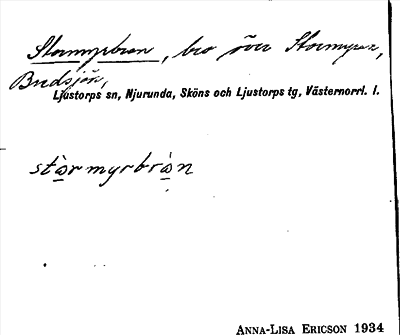 Stormyrbron, bro över Stormyran,
Budsjön,
Ljustorps sn, Njurunda, Sköns och Ljustorps tg, Västernorrl. l.
stòrmyrbròn
ANNA-LISA ERICSON 1934